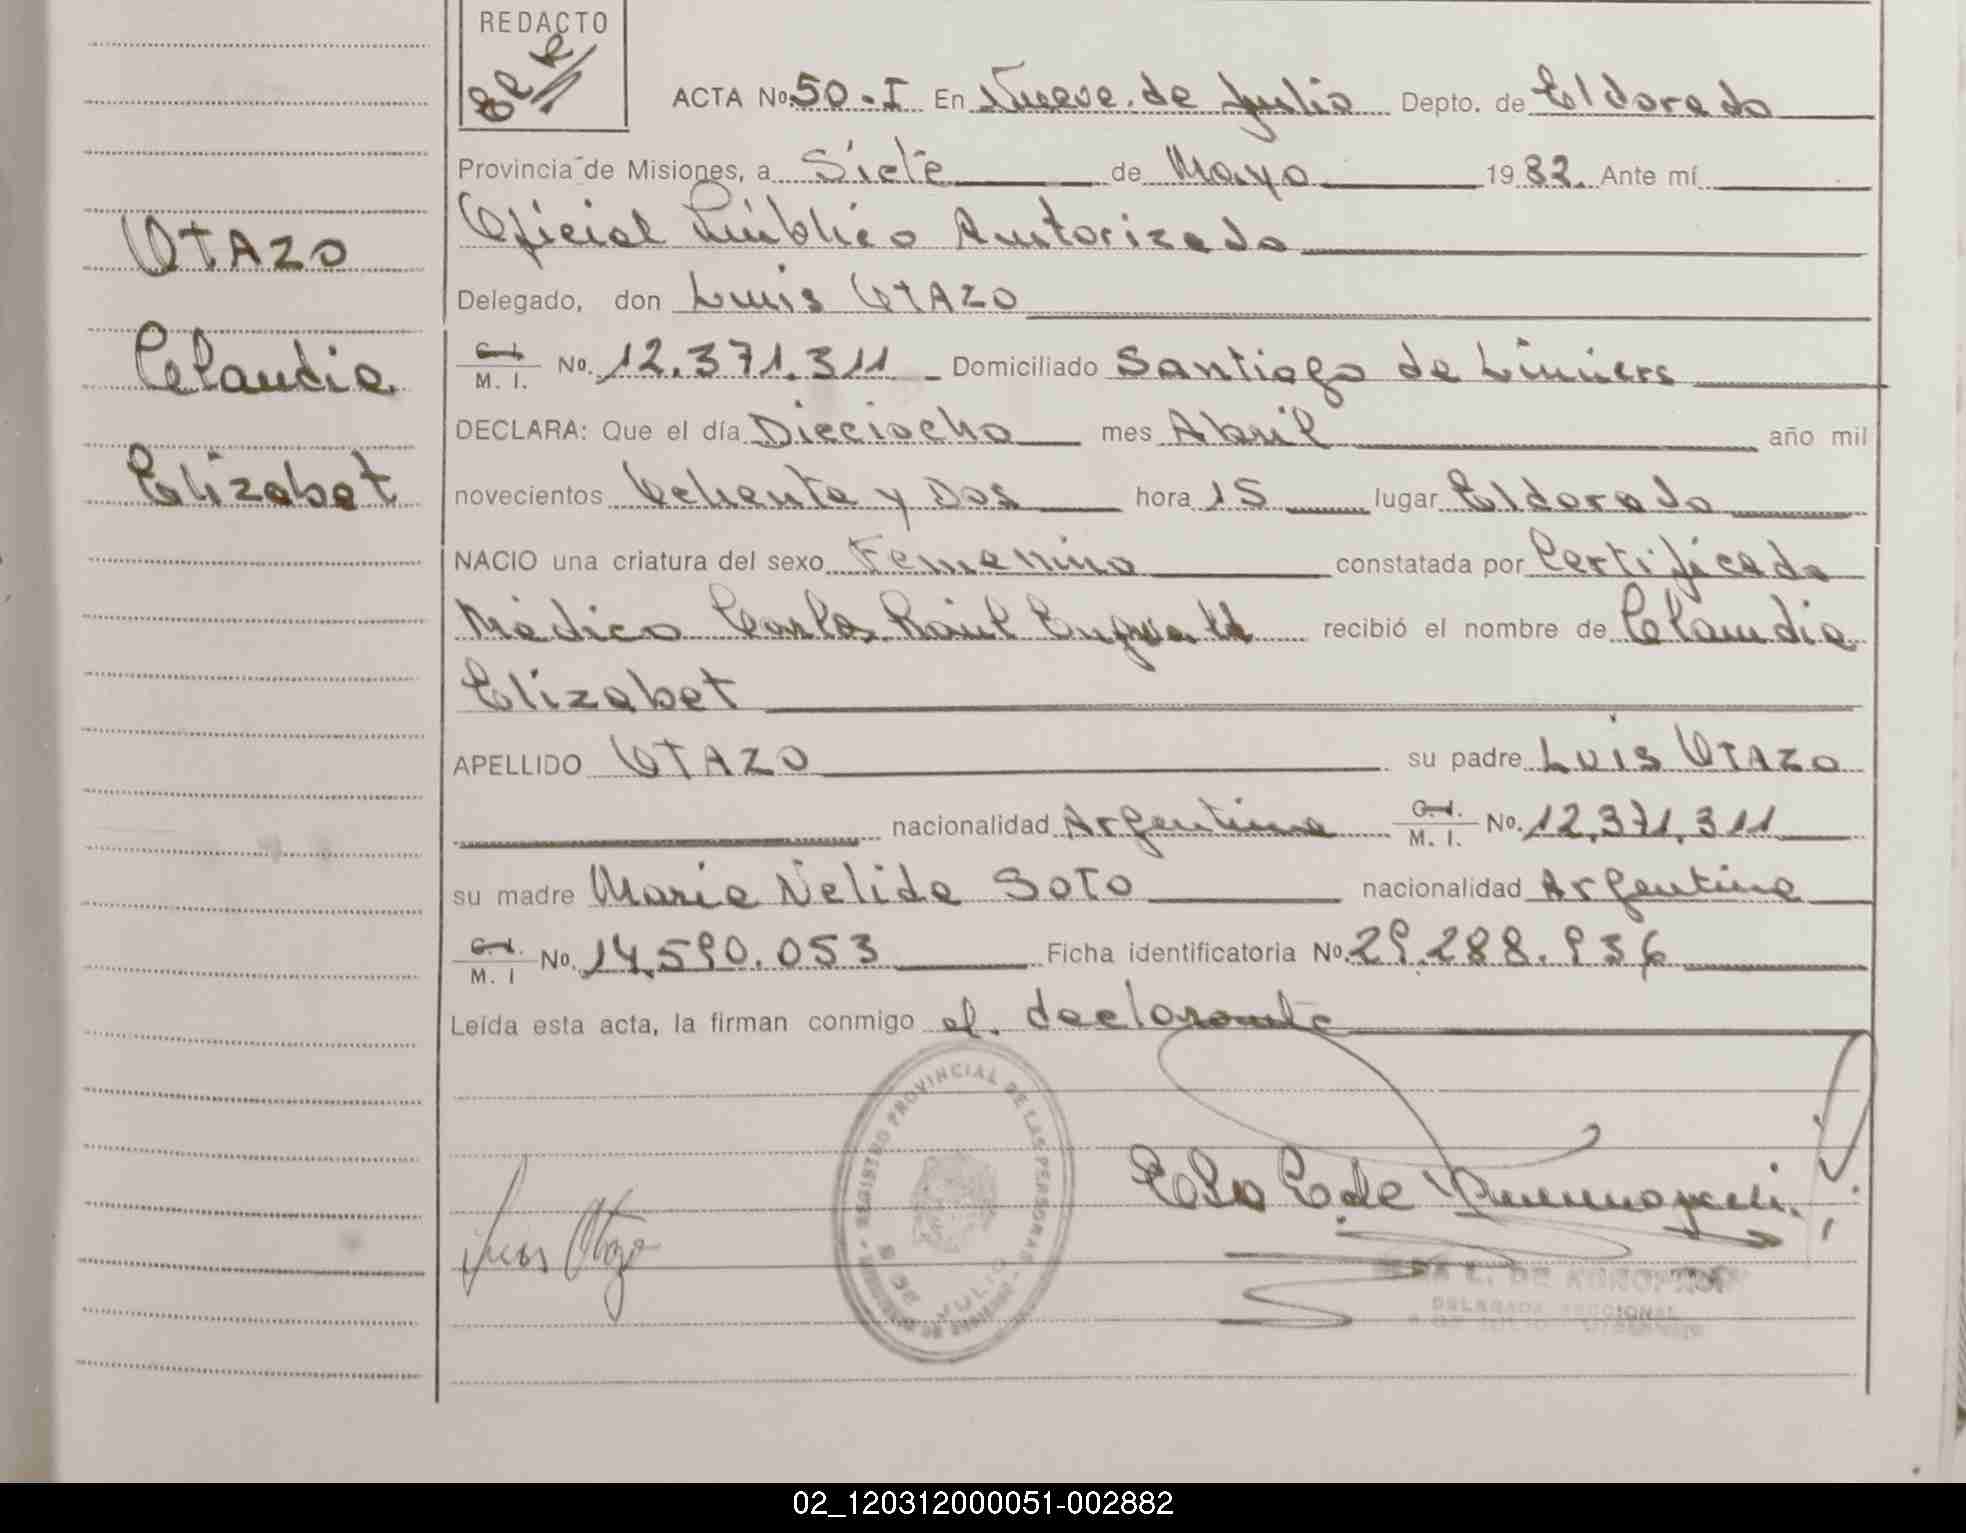 REDACTO
ACTA No. 50-I En Nueve de Julio Depto. de Eldorado
Provincia de Misiones, a Siete de Mayo 1982. Ante mí
Oficial Público Autorizado
OTAZO
Delegado, don Luis OTAZO
C. I. M. I. No. 12.371.311 Domiciliado Santiago de Liniers
Claudia
DECLARA: Que el día Dieciocho mes Abril año mil
Elizabet
novecientos Ochenta y Dos hora 15 lugar Eldorado
NACIO una criatura del sexo Femenino constatada por Certificado
Médico Carlos Raúl recibió el nombre de Claudia
Elizabet
APELLIDO OTAZO su padre Luis OTAZO
nacionalidad Argentina C. I. M. I. No. 12.371.311
su madre Maria Nelida SOTO nacionalidad Argentina
C. I. M. I No. 14.590.053 Ficha identificatoria No. 29.288.936
Leída esta acta, la firman conmigo el declarante
REGISTRO PROVINCIAL DE LAS PERSONAS
9 DE JULIO
Luis Otazo
DELEGADA SECCIONAL
9 DE JULIO
02_120312000051-002882